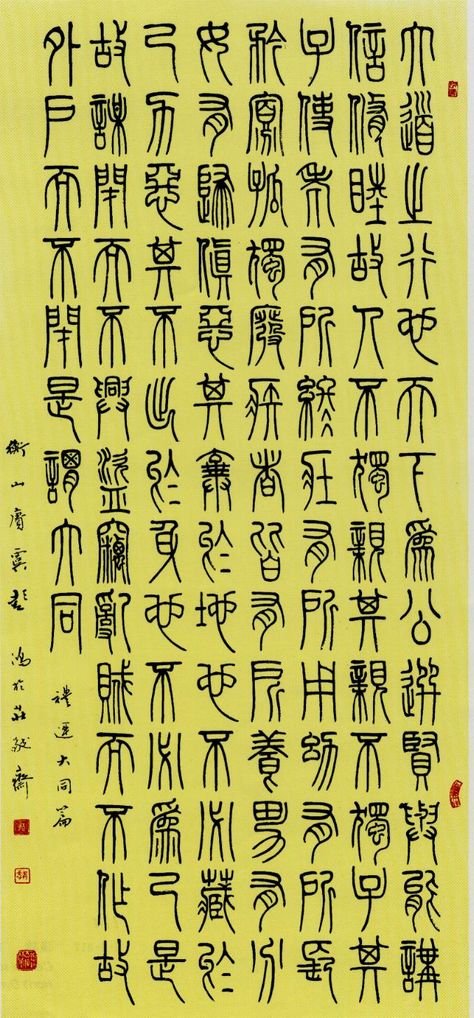 大道之行也天下為公選賢與能講
信修睦故人不獨親其親不獨子其
子使老有所終壯有所用幼有所長
矜寡孤獨廢疾者皆有所養男有分
女有歸貨惡其棄於地也不必藏於
己力惡其不出於身也不必為己是
故謀閉而不興盜竊亂賊而不作故
外戶而不閉是謂大同
禮運大同篇
衡山 彭鴻於莊敬齋